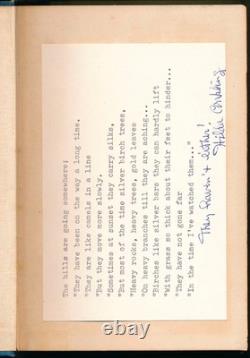 The hills are going somewhere;
"They have been on the way a long time.
"They are like camels in a line
"But they move more slowly.
"Sometimes at sunset they carry silks,
"But most of the time silver birch trees,
"Heavy rocks, heavy trees, gold leaves
"On heavy branches till they are aching...
"Birches like silver bars they can hardly lift
"With grass so thick about their feet to hinder...
"They have not gone far
"In the time I've watched them..."
They haven't either!
Hilda Conkling